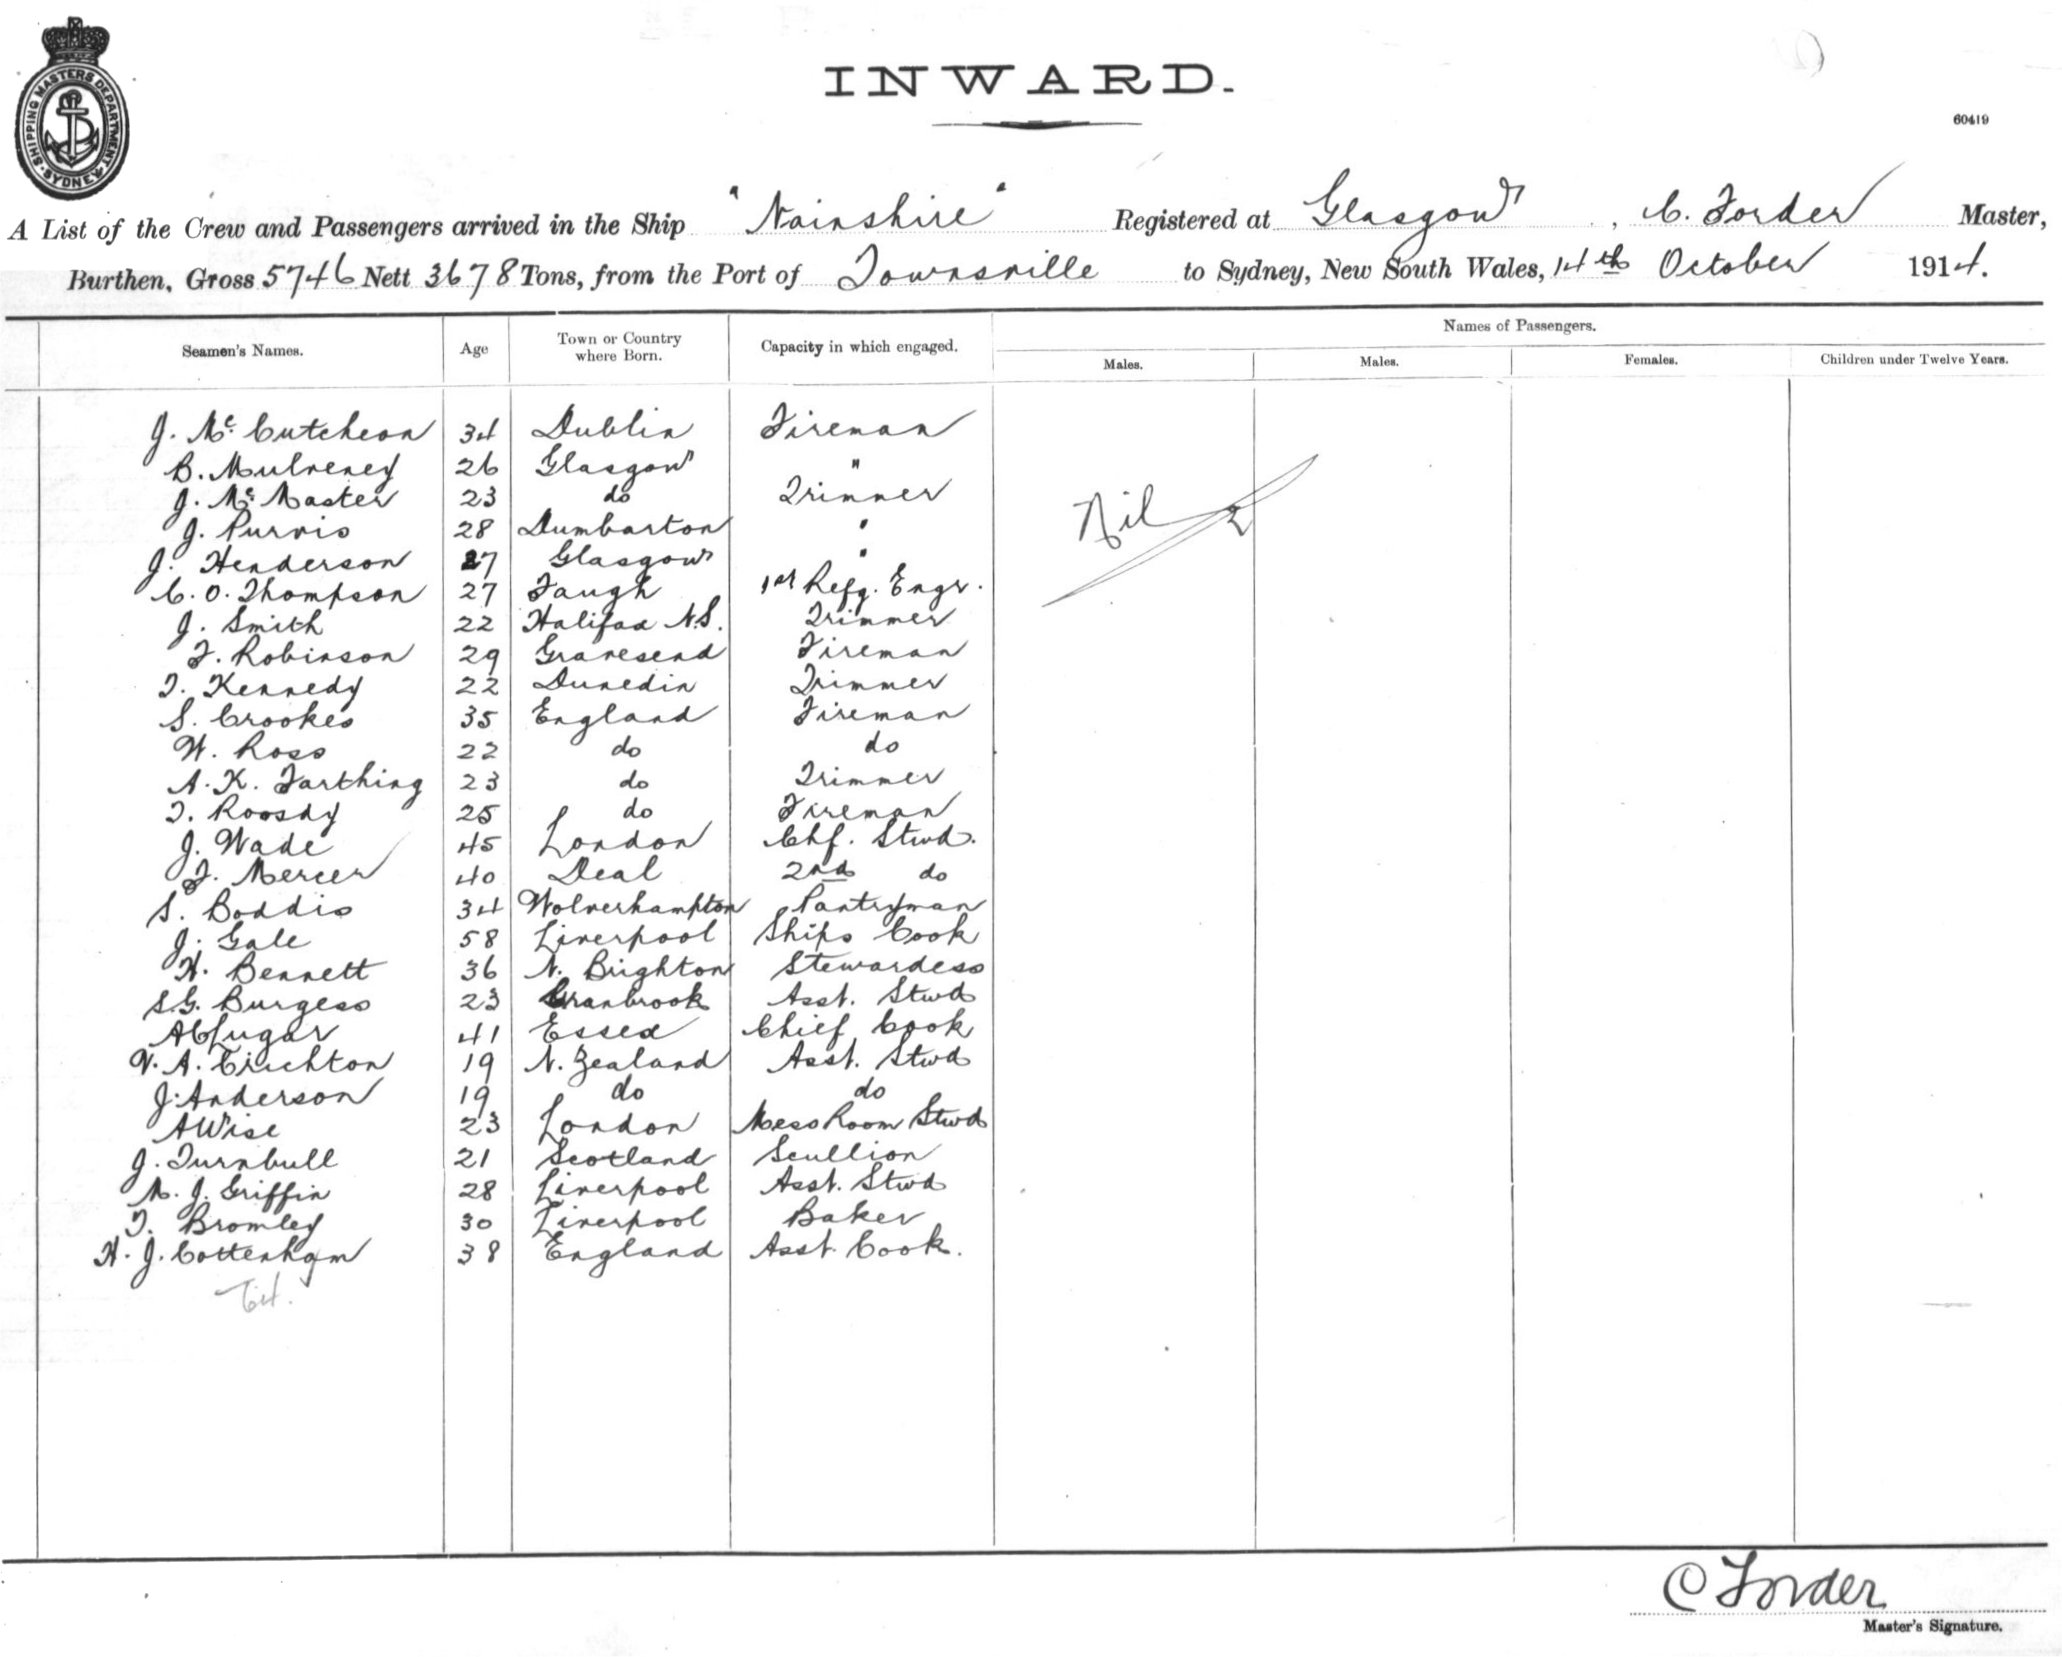 SHIPPING MASTERS DEPARTMENT
SYDNEY
INWARD.
60419
A List of the Crew and Passengers arrived in the Ship "Nairnshire" Registered at Glasgow, C. Forder Master,
Burthen, Gross 5746 Nett 3678 Tons, from the Port of Townsville to Sydney, New South Wales, 14th October 1914.
Names of Passengers.
Seamen's Names. Age Town or Country where Born. Capacity in which engaged. Males. Males. Females. Children under Twelve Years.
J. McCutcheon 34 Dublin Fireman
B. Mulveney 26 Glasgow "
J. McMaster 23 do Trimmer
Nil
J. Purvis 28 Dumbarton "
J. Henderson 27 Glasgow "
C. O. Thompson 27 Faugh 1st Refg. Engr.
J. Smith 22 Halifax N.S. Trimmer
F. Robinson 29 Gravesend Fireman
T. Kennedy 22 Dunedin Trimmer
S. Crookes 35 England Fireman
W. Ross 22 do do
A. K. Farthing 23 do Trimmer
T. Roosdy 25 do Fireman
J. Wade 45 London Chf. Stwd.
F. Mercer 40 Deal 2nd do
S. Boddis 34 Wolverhampton Pantryman
J. Gale 58 Liverpool Ships Cook
H. Bennett 36 N. Brighton Stewardess
S.G. Burgess 23 Cranbrook Asst. Stwd
A C Lugar 41 Essex Chief Cook
A. Crichton 19 N. Zealand Asst. Stwd
J. Anderson 19 do do
A Wise 23 London Mess Room Stwd
J. Turnbull 21 Scotland Scullion
M. J. Griffin 28 Liverpool Asst. Stwd
T. Bromley 30 Liverpool Baker
H. J. Cottenham 38 England Asst. Cook.
C Forder
Master's Signature.